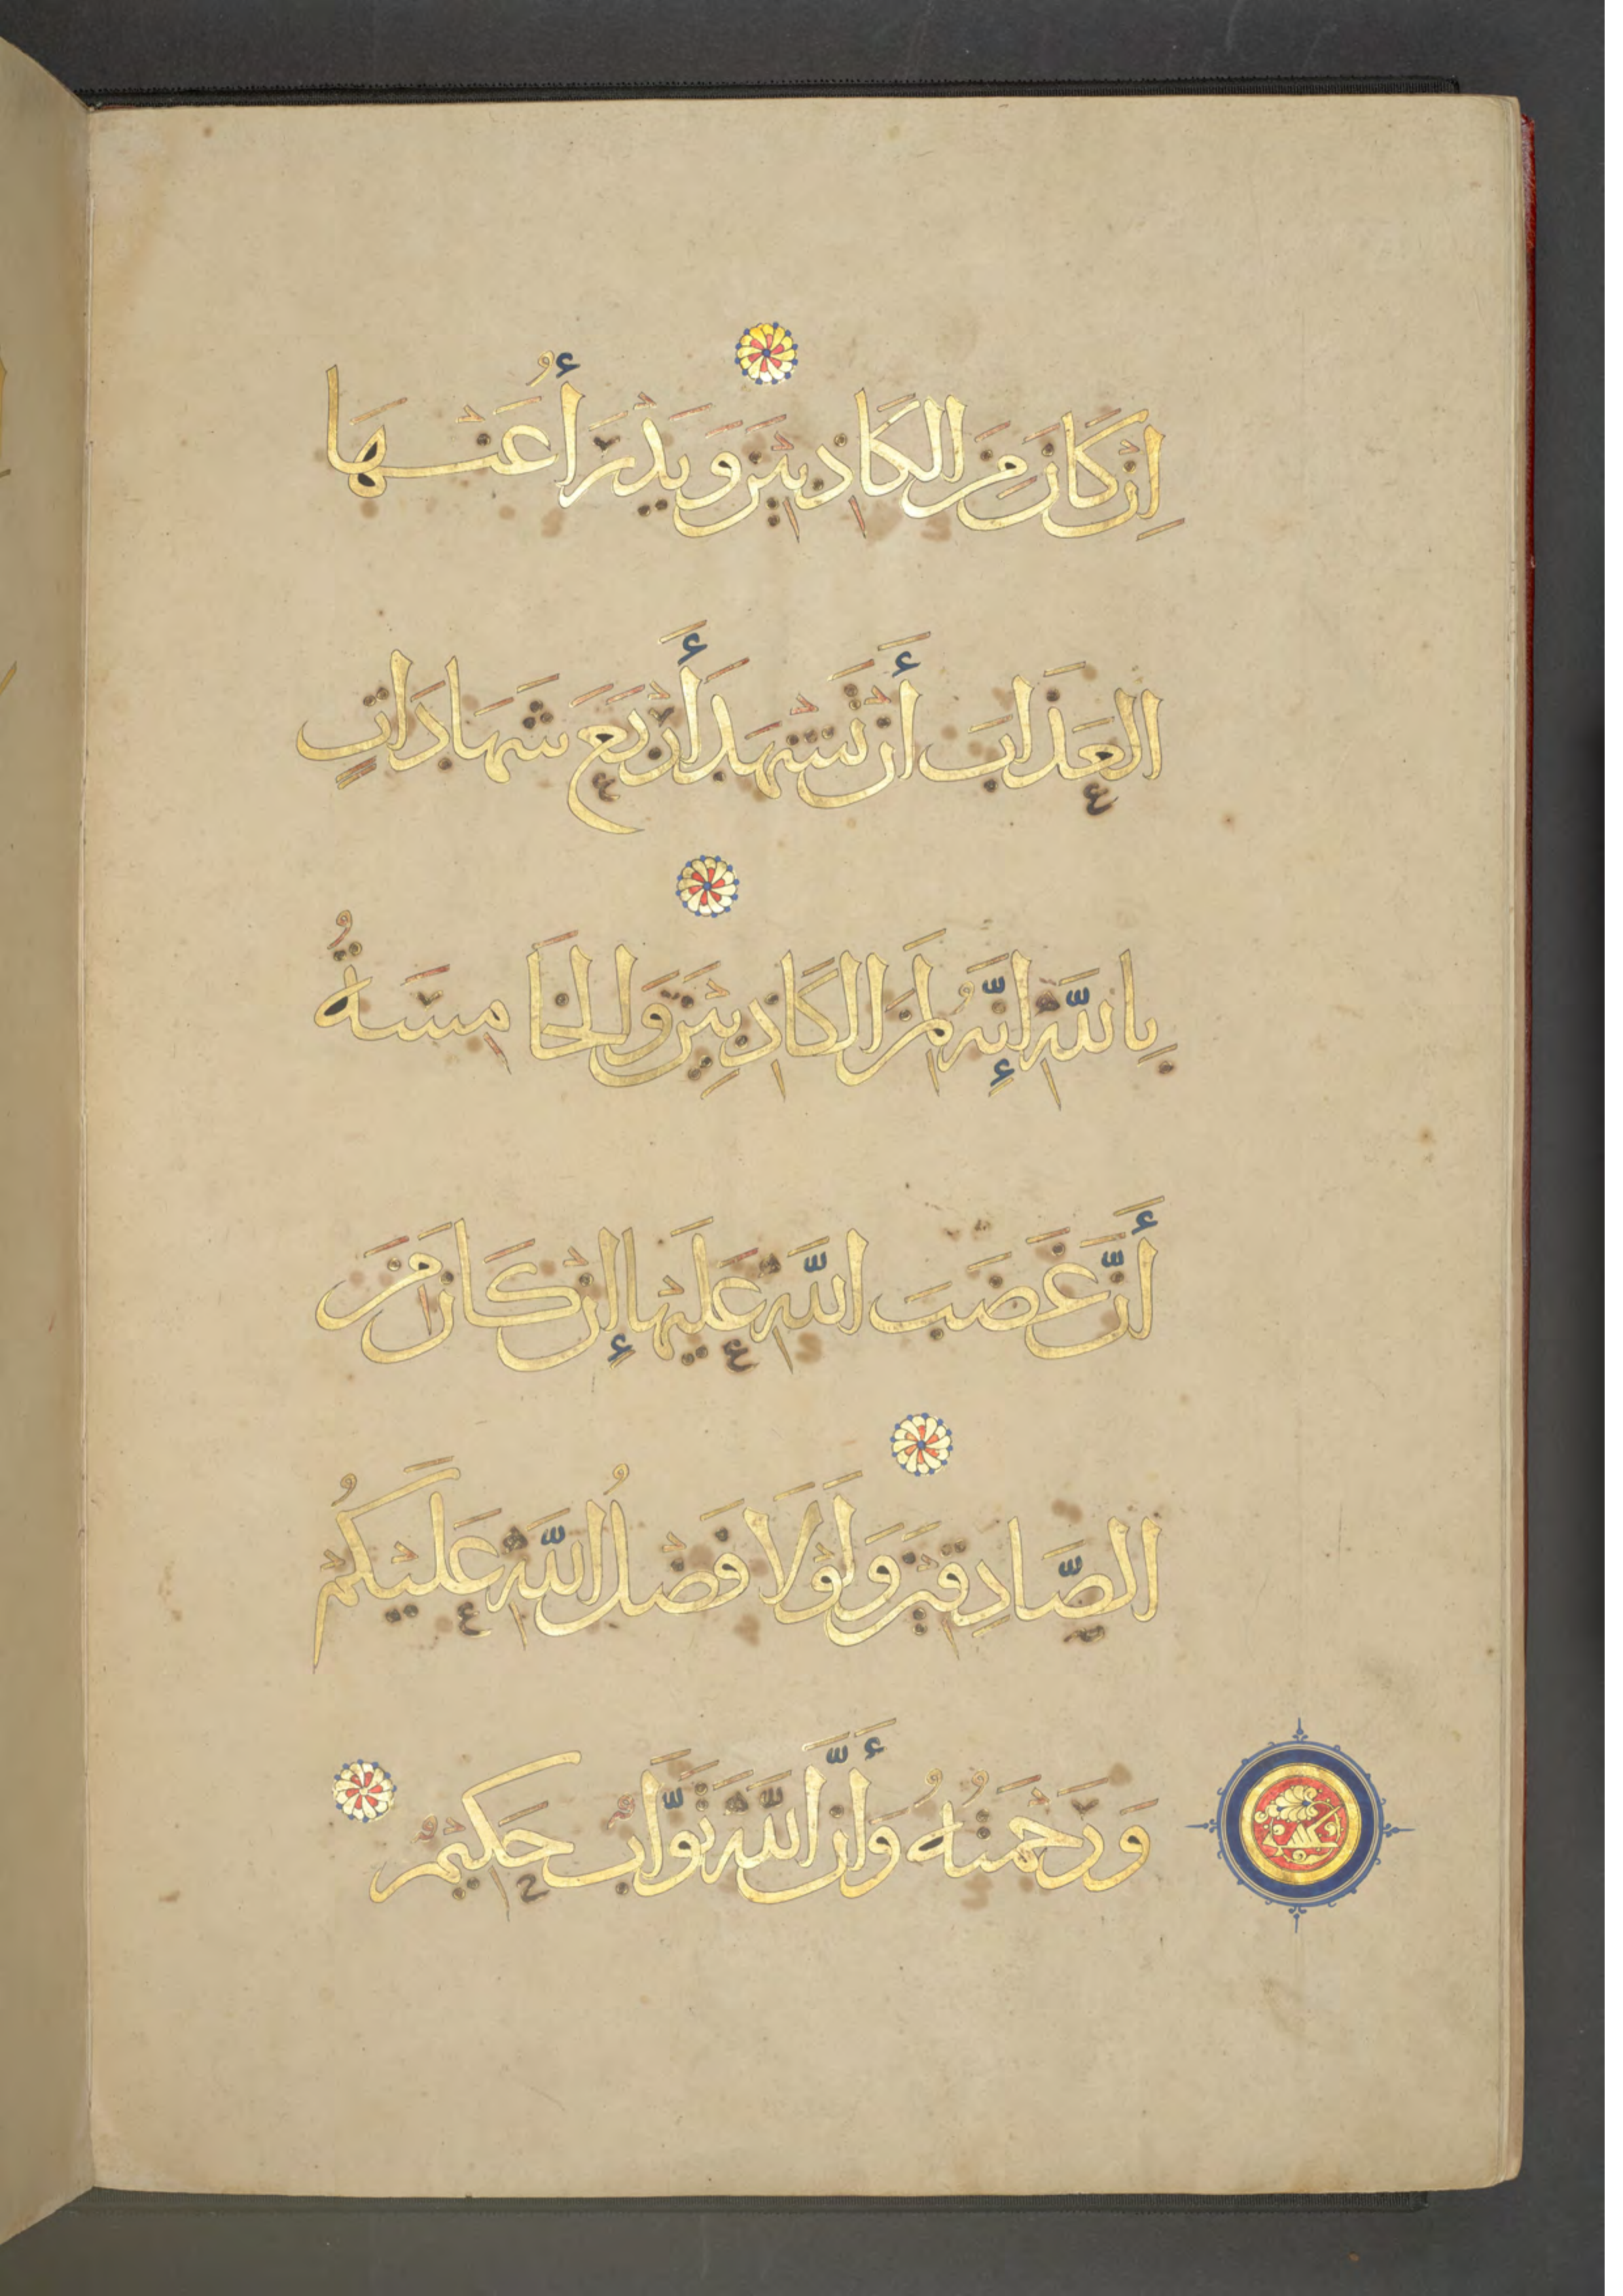 إِنْ كَانَ مِنَ الكَاذِبِيْنَ وَيَدْرَأُ عَنْهَا
العَذَابَ أَنْ تَشْهَدَ أَرْبَعَ شَهَادَاتٍ
بِاللَّهِ إِنَّهُ لَمِنَ الكَاذِبِيْنَ وَالخَامِسَةُ
أَنَّ غَضَبَ اللَّهِ عَلَيْهَا إِنْ كَانَ مِنَ
الصَّادِقِيْنَ وَلَوْلَا فَضْلُ اللَّهِ عَلَيْكُمْ
وَرَحْمَتُهُ وَأَنَّ اللَّهَ تَوَّابٌ حَكِيْمٌ